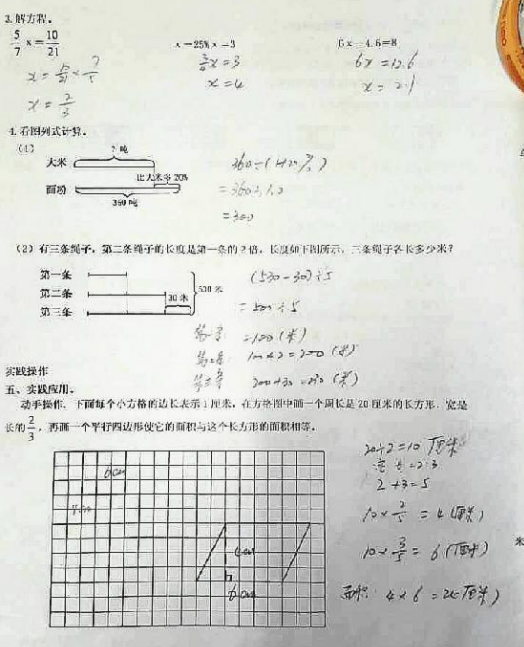 3.解方程。
5/7 x=10/21 x-25%x=3 6x-4.6=8
x=10/21×7/5 3/4x=3 6x=12.6
x=2/3 x=4 x=2.1
4.看图列式计算。
(1)
?吨
大米
比大米多20%
面粉
360吨
360÷(1+20%)
=360÷1.2
=300
(2)有三条绳子，第二条绳子的长度是第一条的2倍，长度如下图所示，三条绳子各长多少米?
第一条
第二条
30米
第三条
530米
(530-30)÷5
=500÷5
第一条: =100(米)
第二条: 100×2=200(米)
第三条 200+30=230(米)
实践操作
五、实践应用。
动手操作。下面每个小方格的边长表示1厘米，在方格图中画一个周长是20厘米的长方形，宽是
长的2/3，再画一个平行四边形使它的面积与这个长方形的面积相等。
20÷2=10厘米
2+3=5
10×2/5=4(厘米)
10×3/5=6(厘米)
面积: 4×6=24
6cm
6cm